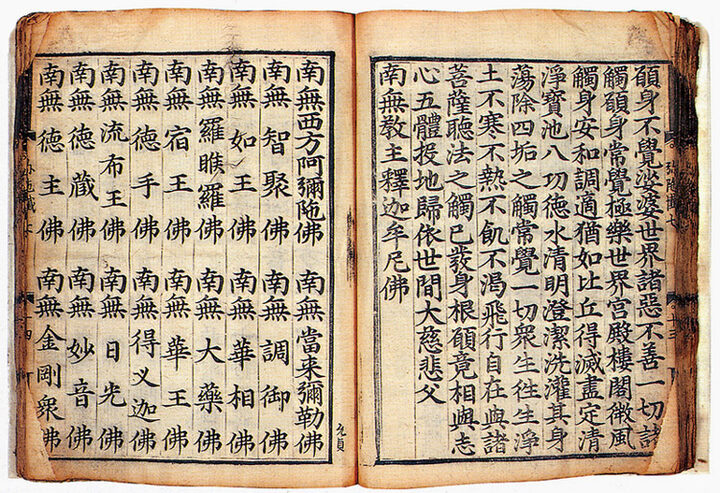 願身不覺娑婆世界諸惡不善一切諸
觸願身常覺極樂世界宮殿樓閣微風
觸身安和調適猶如比丘得滅盡定清
淨寶池八功德水清明澄潔洗灌其身
蕩除四垢之觸常覺一切衆生徃生淨
土不寒不熱不飢不渴飛行自在與諸
菩薩聽法之觸已發身根願竟相與志
心五體投地歸依世間大慈悲父
南無教主釋迦牟尼佛
南無西方阿彌陁佛 南無當來彌勒佛
南無智聚佛 南無調御佛
南無如王佛 南無華相佛
南無羅睺羅佛 南無大藥佛
南無宿王佛 南無華王佛
南無德手佛 南無得叉迦佛
南無流布王佛 南無日光佛
南無德藏佛 南無妙音佛
南無德主佛 南無金剛衆佛